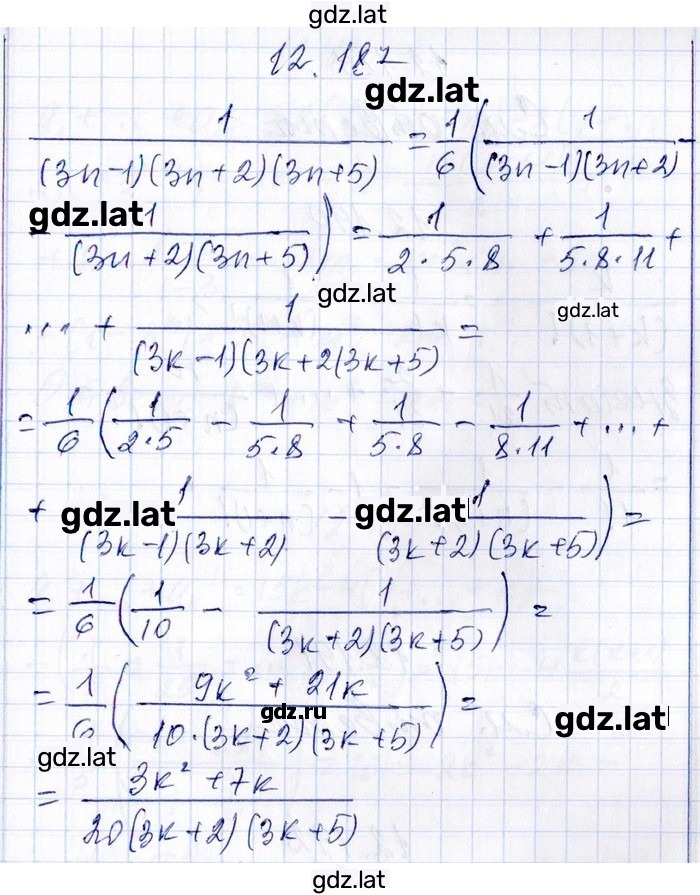 gdz.lat
12.187
gdz.lat
1/((3n-1)(3n+2)(3n+5)) = 1/6 (1/((3n-1)(3n+2)) -
gdz.lat
- 1/((3n+2)(3n+5))) = 1/(2·5·8) + 1/(5·8·11) +
gdz.lat
gdz.lat
... + 1/((3k-1)(3k+2(3k+5)) =
= 1/6 (1/(2·5) - 1/(5·8) + 1/(5·8) - 1/(8·11) + ... +
gdz.lat gdz.lat
+ 1/((3k-1)(3k+2)) - 1/((3k+2)(3k+5))) =
= 1/6 (1/10 - 1/((3k+2)(3k+5))) =
= 1/6 ((9k² + 21k)/(10·(3k+2)(3k+5))) =
gdz.ru
gdz.lat
gdz.lat
= (3k² + 7k)/(20(3k+2)(3k+5))
gdz.lat